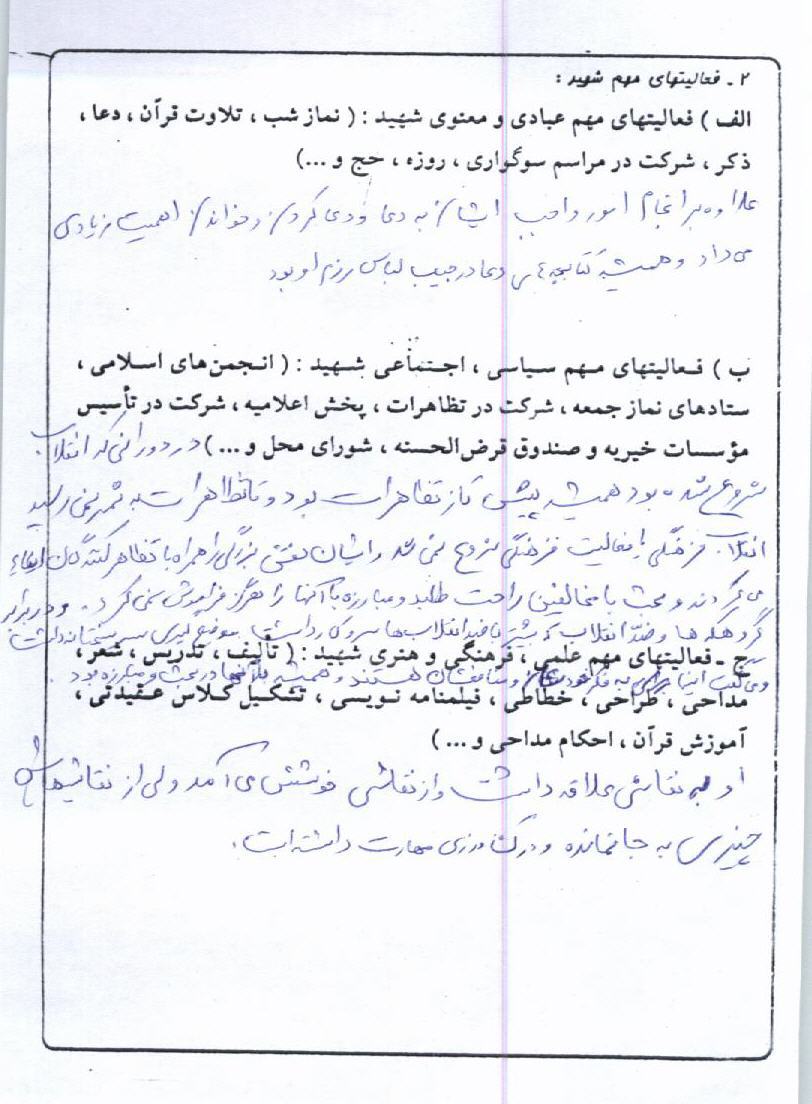 ۲ ـ فعالیتهای مهم شهید :
الف ) فعالیتهای مهم عبادی و معنوی شهید : ( نماز شب ، تلاوت قرآن ، دعا ،
ذکر ، شرکت در مراسم سوگواری ، روزه ، حج و ...)
علاوه بر انجام امور واجب ایشان به دعا و دعا کردن و خواندن اهمیت زیادی
می داد و همیشه کتابچه های دعا در جیب لباس رزم او بود
ب ) فعالیتهای مهم سیاسی ، اجتماعی شهید : ( انجمن‌های اسلامی ،
ستادهای نماز جمعه ، شرکت در تظاهرات ، پخش اعلامیه ، شرکت در تأسیس
مؤسسات خیریه و صندوق قرض‌الحسنه ، شورای محل و ... ) در دورانی که انقلاب
شروع شده بود همیشه پیش تاز تظاهرات بود و تا تظاهرات به ثمر نمی رسید
انقلاب فرهنگی یا فعالیت فرهنگی شروع نمی شد و ایشان نقش بزرگی را همراه با تظاهر کنندگان ایفاء
می کردند و بحث با مخالفین راحت طلبد و مبارزه با آنها را هرگز فراموش نمی کرد . و در برابر
گروهکها و ضد انقلاب که بیشتر با ضد انقلاب‌ها سر و کار داشت موضع گیری سرسختانه داشت
ج ـ فعالیتهای مهم علمی ، فرهنگی و هنری شهید : ( تألیف ، تدریس ، شعر ،
و می گفت اینها به فکر خودشان و منافعشان هستند و همیشه با آنها در بحث و مبارزه بود .
مداحی ، طراحی ، خطاطی ، فیلمنامه نویسی ، تشکیل کلاس عقیدتی ،
آموزش قرآن ، احکام مداحی و ... )
او به نقاشی علاقه داشت و از نقاشی خوشش می آمد ولی از نقاشیهایش
چیزی به جا نمانده و در کشاورزی مهارت داشته است .